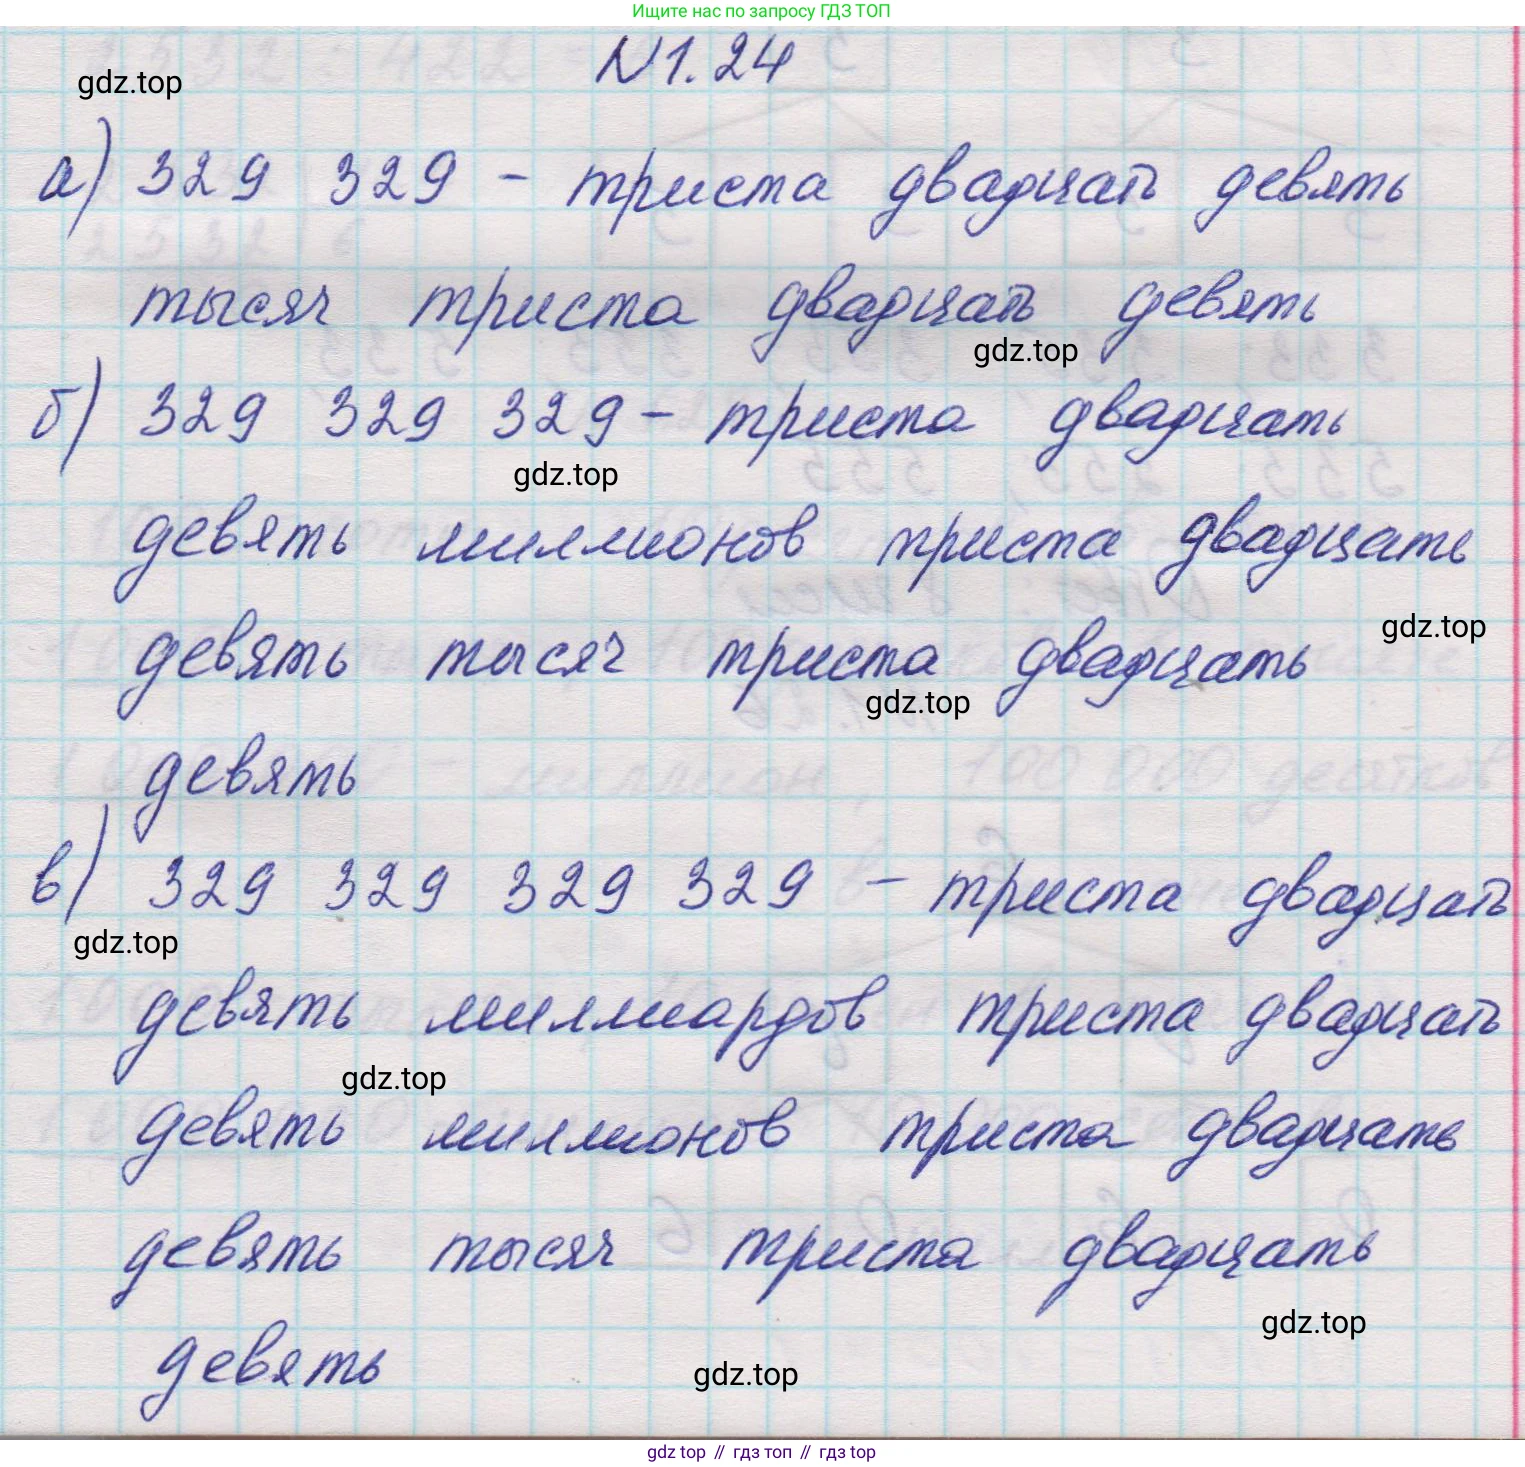 Ищите нас по запросу ГДЗ ТОП
N 1.24
gdz.top
а) 329 329 - триста двадцать девять
тысяч триста двадцать девять
gdz.top
б) 329 329 329 - триста двадцать
gdz.top
девять миллионов триста двадцать
gdz.top
девять тысяч триста двадцать
gdz.top
девять
в) 329 329 329 329 - триста двадцать
gdz.top
девять миллиардов триста двадцать
gdz.top
девять миллионов триста двадцать
девять тысяч триста двадцать
gdz.top
девять
gdz.top
gdz top // гдз топ // гдз top